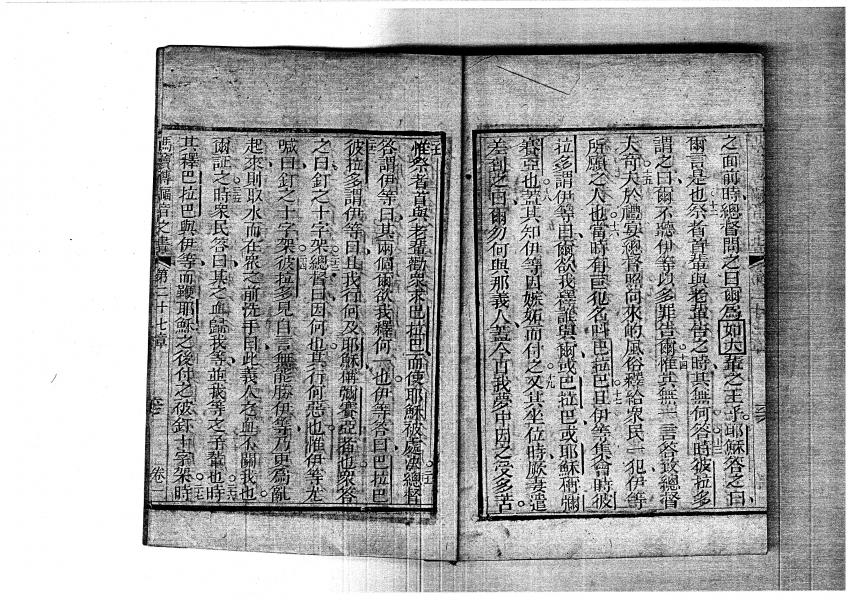 之面前時總督問之曰爾爲如大輩之王乎耶穌答之曰
爾言是也祭者首輩與老輩告之時其無何答時彼拉多
謂之曰爾不聽伊等以多罪告爾惟其無一言答致總督
大奇夫於禮宴總督照向來的風俗釋給衆民一犯伊等
所願之人也當時有巨犯名呌巴拉巴且伊等集會時彼
拉多謂伊等曰爾欲我釋誰與爾或巴拉巴或耶穌稱彌
賽亞也蓋其知伊等因嫉妬而付之又其坐位時厥妻遣
差劊之曰爾勿何與那義人蓋今日我夢中因之受多苦
惟祭者首與老輩勸衆求巴拉巴而使耶穌被處決總督
答謂伊等曰其兩個爾欲我釋何一也伊等答曰巴拉巴
彼拉多謂伊等曰且我行何及耶穌稱彌賽亞者也衆答
之曰釘之十字架總督曰因何也其行何惡也惟伊等尤
喊曰釘之十字架彼拉多見自言無能勝伊等乃更爲亂
起來則取水而在衆之前洗手曰此義人之血不關我也
爾証之時衆民答曰其之血歸我等並我等之子輩也時
其釋巴拉巴與伊等而鞭耶穌之後付之彼釘十字架時
馬竇傳福音之書 第二十七章 卷一